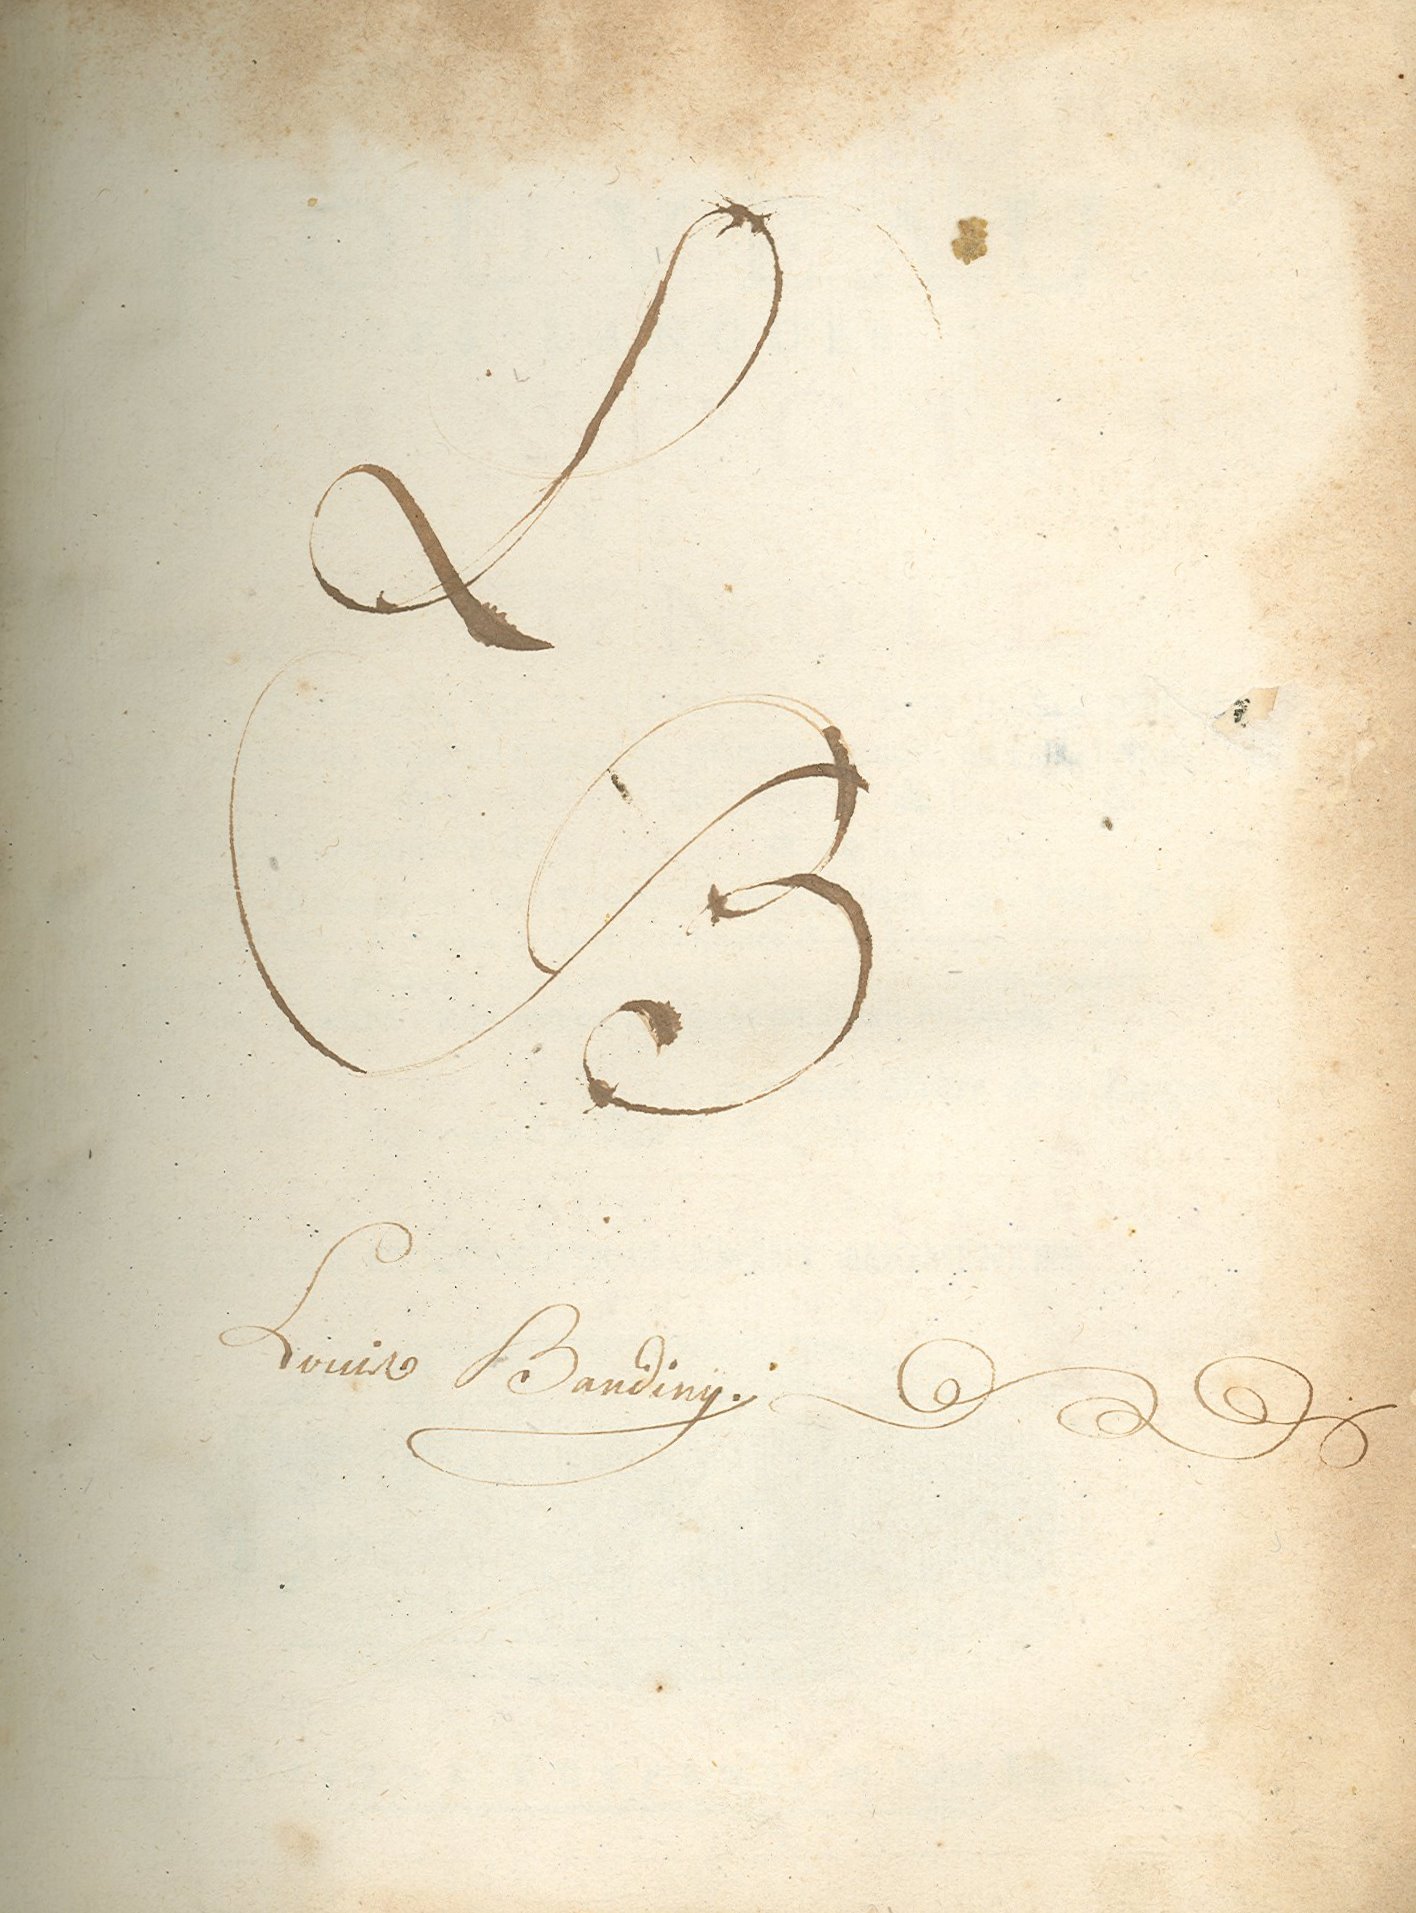 L
B
Louise Bandiny.